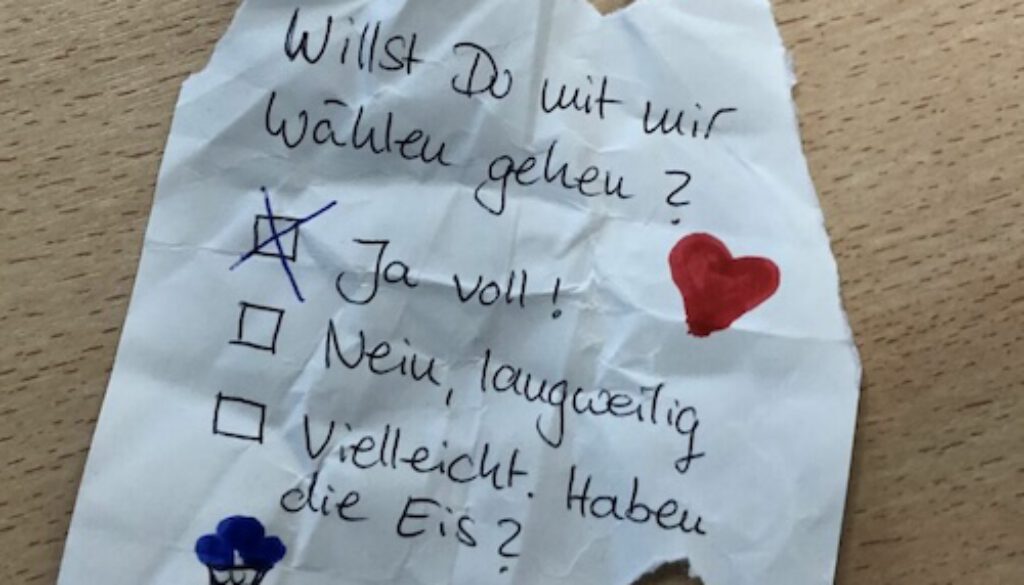 Willst Du mit mir
wählen gehen?
Ja voll!
Nein, langweilig
Vielleicht. Haben
die Eis?